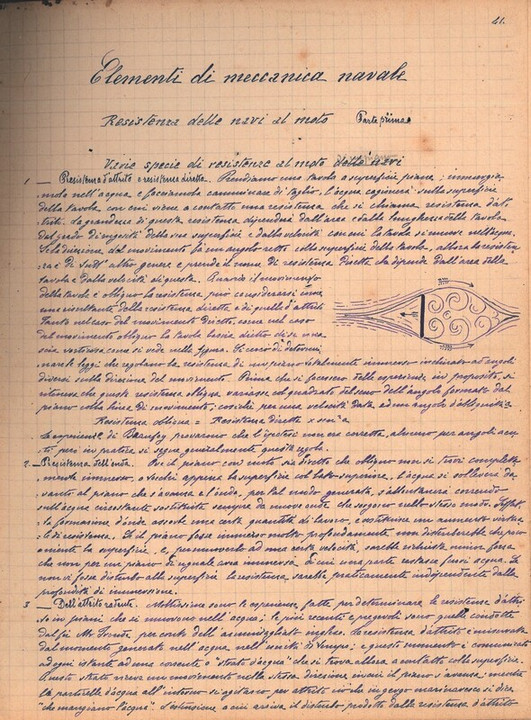 41.
Elementi di meccanica navale
Resistenza delle navi al moto Parte prima
Varie specie di resistenze al moto delle navi
1 — Resistenza d'attrito e resistenza diretta. Prendiamo una tavola a superficie piana; immergia-
mola nell'acqua, e facciamola camminare di taglio, l'acqua cagionerà sulla superficie
della tavola con cui viene a contatto una resistenza che si chiama resistenza d'at-
trito. La grandezza di questa resistenza dipenderà dall'area e dalla lunghezza della tavola
dal grado di rugosità della sua superficie e dalla velocità con cui la tavola si muove nell'acqua.
Se la direzione del movimento fa un angolo retto colla superficie della tavola, allora la resisten-
za è di tutt'altro genere e prende il nome di resistenza diretta che dipende dall'area della
tavola e dalla velocità di questa. Quando il movimento
della tavola è obliquo la resistenza può considerarsi come
una risultante della resistenza diretta e di quella d'attrito
Tanto nel caso del movimento diretto, come nel caso
del movimento obliquo la tavola lascia dietro di se una
scia vorticosa come si vede nella figura. Si cercò di determi-
nare le leggi che regolano la resistenza di un piano totalmente immerso inclinato ad angoli
diversi sulla direzione del movimento. Prima che si facessero delle esperienze in proposito, si
riteneva che questa resistenza obliqua variasse col quadrato del seno dell'angolo formato dal
piano colla linea di movimento; cosichè per una velocità data ad un angolo d'obliquità α
Resistenza obliqua = Resistenza diretta x sen²α
Le esperienze di provarono che l'ipotesi non era corretta, almeno per angoli acu-
ti, però in pratica si segue generalmente questa regola.
2 — Resistenza dell'onda. Se il piano così moto sia diretto che obliquo non si trovi completa-
mente immerso, o rischi appena la superficie col lato superiore, l'acqua si solleverà da-
vanti al piano che s'avanza e l'onda, per tal modo generata, s'allontanerà correndo
sull'acqua circostante sostituita sempre da nuove onde che seguono nello stesso modo.
la formazione d'onde assorbe una certa quantità di lavoro, e costituisce un aumento
di resistenza. Se il piano fosse immerso molto profondamente non disturberebbe che poco
mente la superficie, e, per muoverlo ad una certa velocità, sarebbe richiesta minor forza
che non per un piano di eguale area immersa di cui una parte restasse fuori acqua. Se
non vi fosse disturbo alla superficie la resistenza sarebbe praticamente indipendente dalla
profondità di immersione.
3 — Dell'attrito radente. Moltissime sono le esperienze fatte per determinare la resistenza d'attri-
to in piani che si muovono nell'acqua; le più recenti e pregevoli sono quelle condotte
dal fu Mr. Froude, per conto dell'ammiragliato inglese. La resistenza d'attrito è misurata
dal momento generato nell'acqua nell'unità di tempo; e questo momento è comunicato
ad ogni istante ad una corrente o "strato d'acqua" che si trova allora a contatto colla superficie.
Questo strato riceve un movimento nella stessa direzione in cui il piano s'avanza; mentre
le particelle d'acqua all'interno si agitano per attrito ciò che in gergo marinaresco si dice
"che mangiano l'acqua". L'estensione a cui arriva il disturbo prodotto dalla resistenza d'attrito